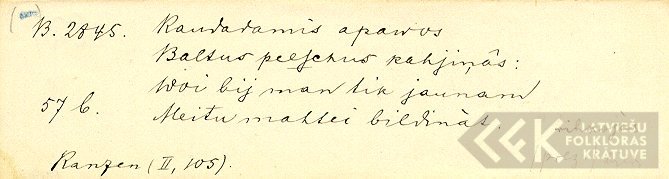 B. 2845. Raudadamis apawos
Baltus pelschus kahjinās:
Woi bij man tik jaunam
57 b. Meitu mahtei bildināt.
Ranzen (II, 105).
LATVIEŠU
FOLKLORAS
KRĀTUVE